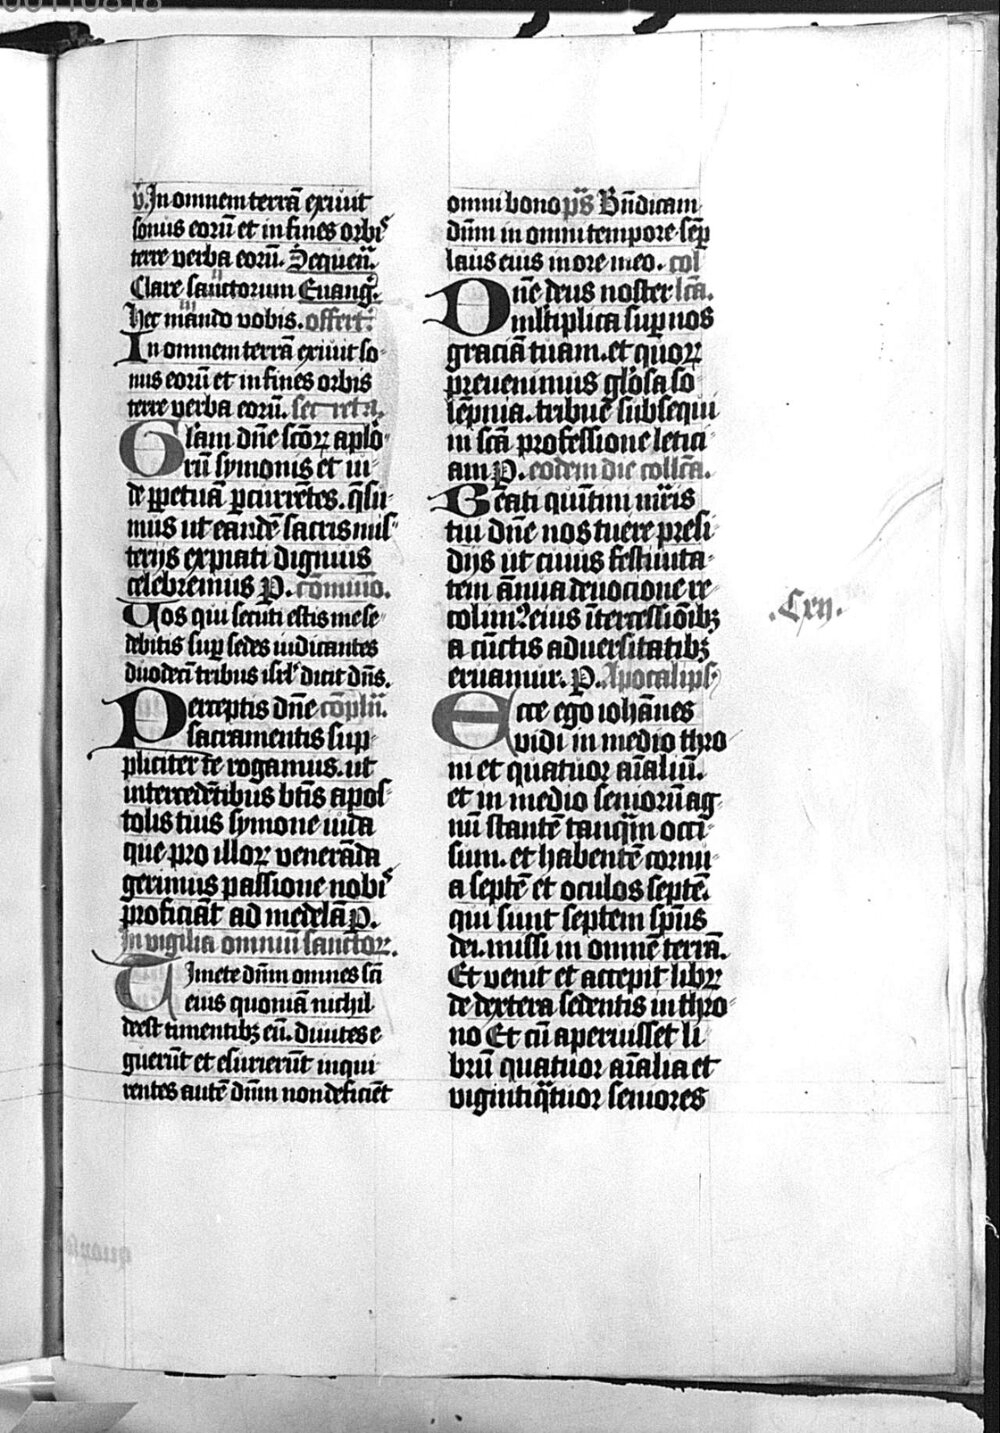 v̄. In omnem terrā exiuit
sonus eorū et in fines orbis
terre verba eorū. Sequen̄.
Clare sanctorum Euanḡ.
Hec mando vobis. offert.
In omnem terrā exiuit so-
nus eorū et in fines orbis
terre verba eorū. secreta.
Gl̄am dn̄e sc̄oꝝ apl̄o-
rū symonis et iu-
de ꝑpetuā ꝑcurrētes. q̄su-
mus ut eandē sacris mis-
terijs expiati dignius
celebremus P. cōmuīo.
Uos qui secuti estis me se-
debitis suꝑ sedes iudicantes
duodecī tribus isrl̄ dicit dn̄s.
Perceptis dn̄e cōplīī.
sacramentis sup-
pliciter te rogamus. ut
intercedētibus btīs apos-
tolis tuis symone iuda
que pro illoꝝ venerāda
gerimus passione nobis
proficiāt ad medelā P.
In vigilia omniū sanctoꝝ.
Timete dn̄m omnes sc̄i
eius quoniā nichil
deest timentibꝫ eū. diuites e-
guerūt et esurierūt inqui-
rentes autē dn̄m non deficiēt
omni bono p̄s Bn̄dicam
dn̄m in omni tempore sēꝑ
laus eius in ore meo. col
Dn̄e deus noster lc̄a.
multiplica suꝑ nos
graciā tuam. et quoꝝ
preuenimus gl̓osa so-
lēpnia. tribue subsequi
in sc̄a professione letici-
am P. eodem die collc̄a.
Beati quītini m̄ris
tui dn̄e nos tuere presi-
dijs ut cuius festiuita-
tem ānua deuocione re-
colimꝰ eius ītercessiōibꝫ
a cūctis aduersitatibꝫ
eruamur. P. Apocalips-
Ecce ego iohānes
vidi in medio thro-
ni et quatuor aīaliū.
et in medio seniorū ag-
nū stantē tanq̄m occi-
sum. et habentē cornu-
a septē et oculos septē.
qui sunt septem sp̄us
dei. missi in omnē terrā.
Et venit et accepit libꝝ
de dextera sedentis in thro-
no Et cū aperuisset li-
brū quatuor aīalia et
vigintiq̄tuor seniores
.Cxij.